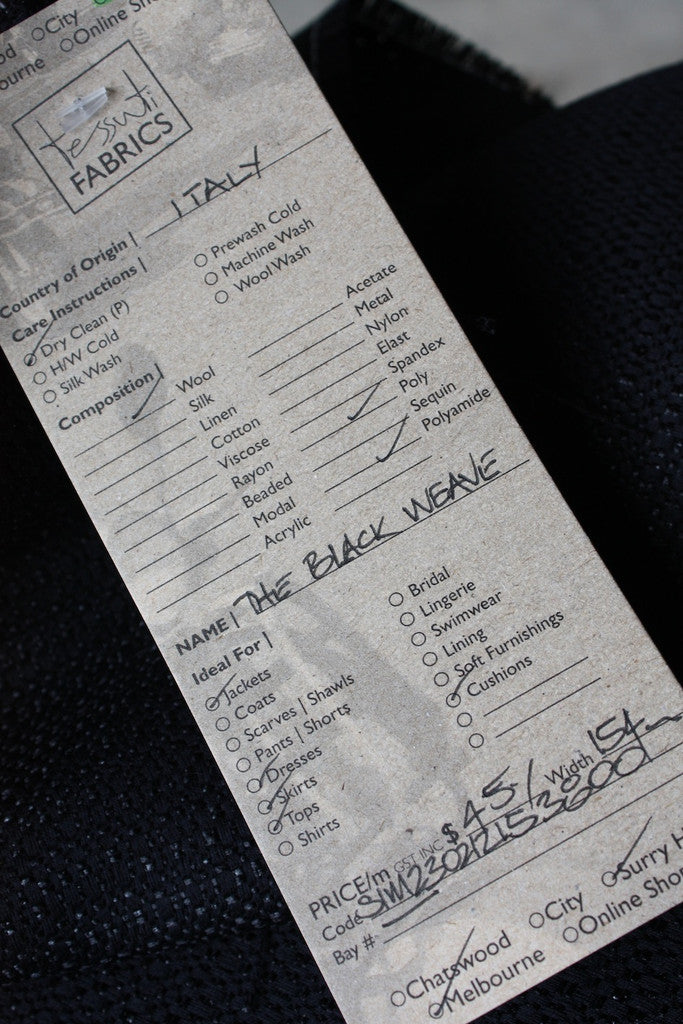 City
ourne Online Sho
tessuti
FABRICS
Country of Origin | ITALY
Care Instructions |
Dry Clean (P)
H/W Cold
Silk Wash
Prewash Cold
Machine Wash
Wool Wash
Composition |
Wool
Silk
Linen
Cotton
Viscose
Rayon
Beaded
Modal
Acrylic
Acetate
Metal
Nylon
Elast
Spandex
Poly
Sequin
Polyamide
NAME | THE BLACK WEAVE
Ideal For |
Jackets
Coats
Scarves | Shawls
Pants | Shorts
Dresses
Skirts
Tops
Shirts
Bridal
Lingerie
Swimwear
Lining
Soft Furnishings
Cushions
PRICE/m GST INC $ 45/ Width 154
Code
Bay #
Chatswood City Surry H
Melbourne Online Shop